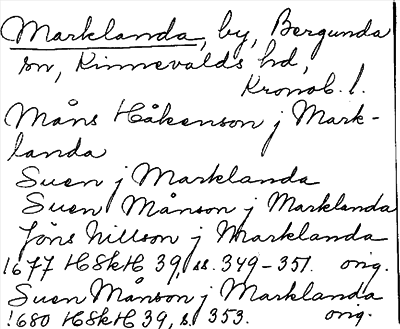 Marklanda, by, Bergunda
sn, Kinnevalds hd,
Kronob. l.
Måns Håkenson j Mark-
landa
Suen j Marklanda
Suen Månson j Marklanda
Jöns Nillson j Marklanda
1677 HSkH 39, ss. 349-351. orig.
Suen Månson j Marklanda
1680 HSkH 39, s. 353. orig.